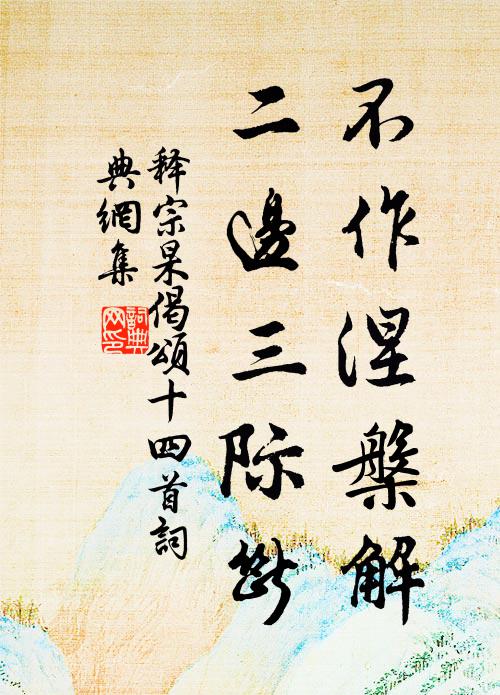 不作涅槃解
二邊三际斷
释宗杲偈頌十四首詞
典網集
詞典
网印